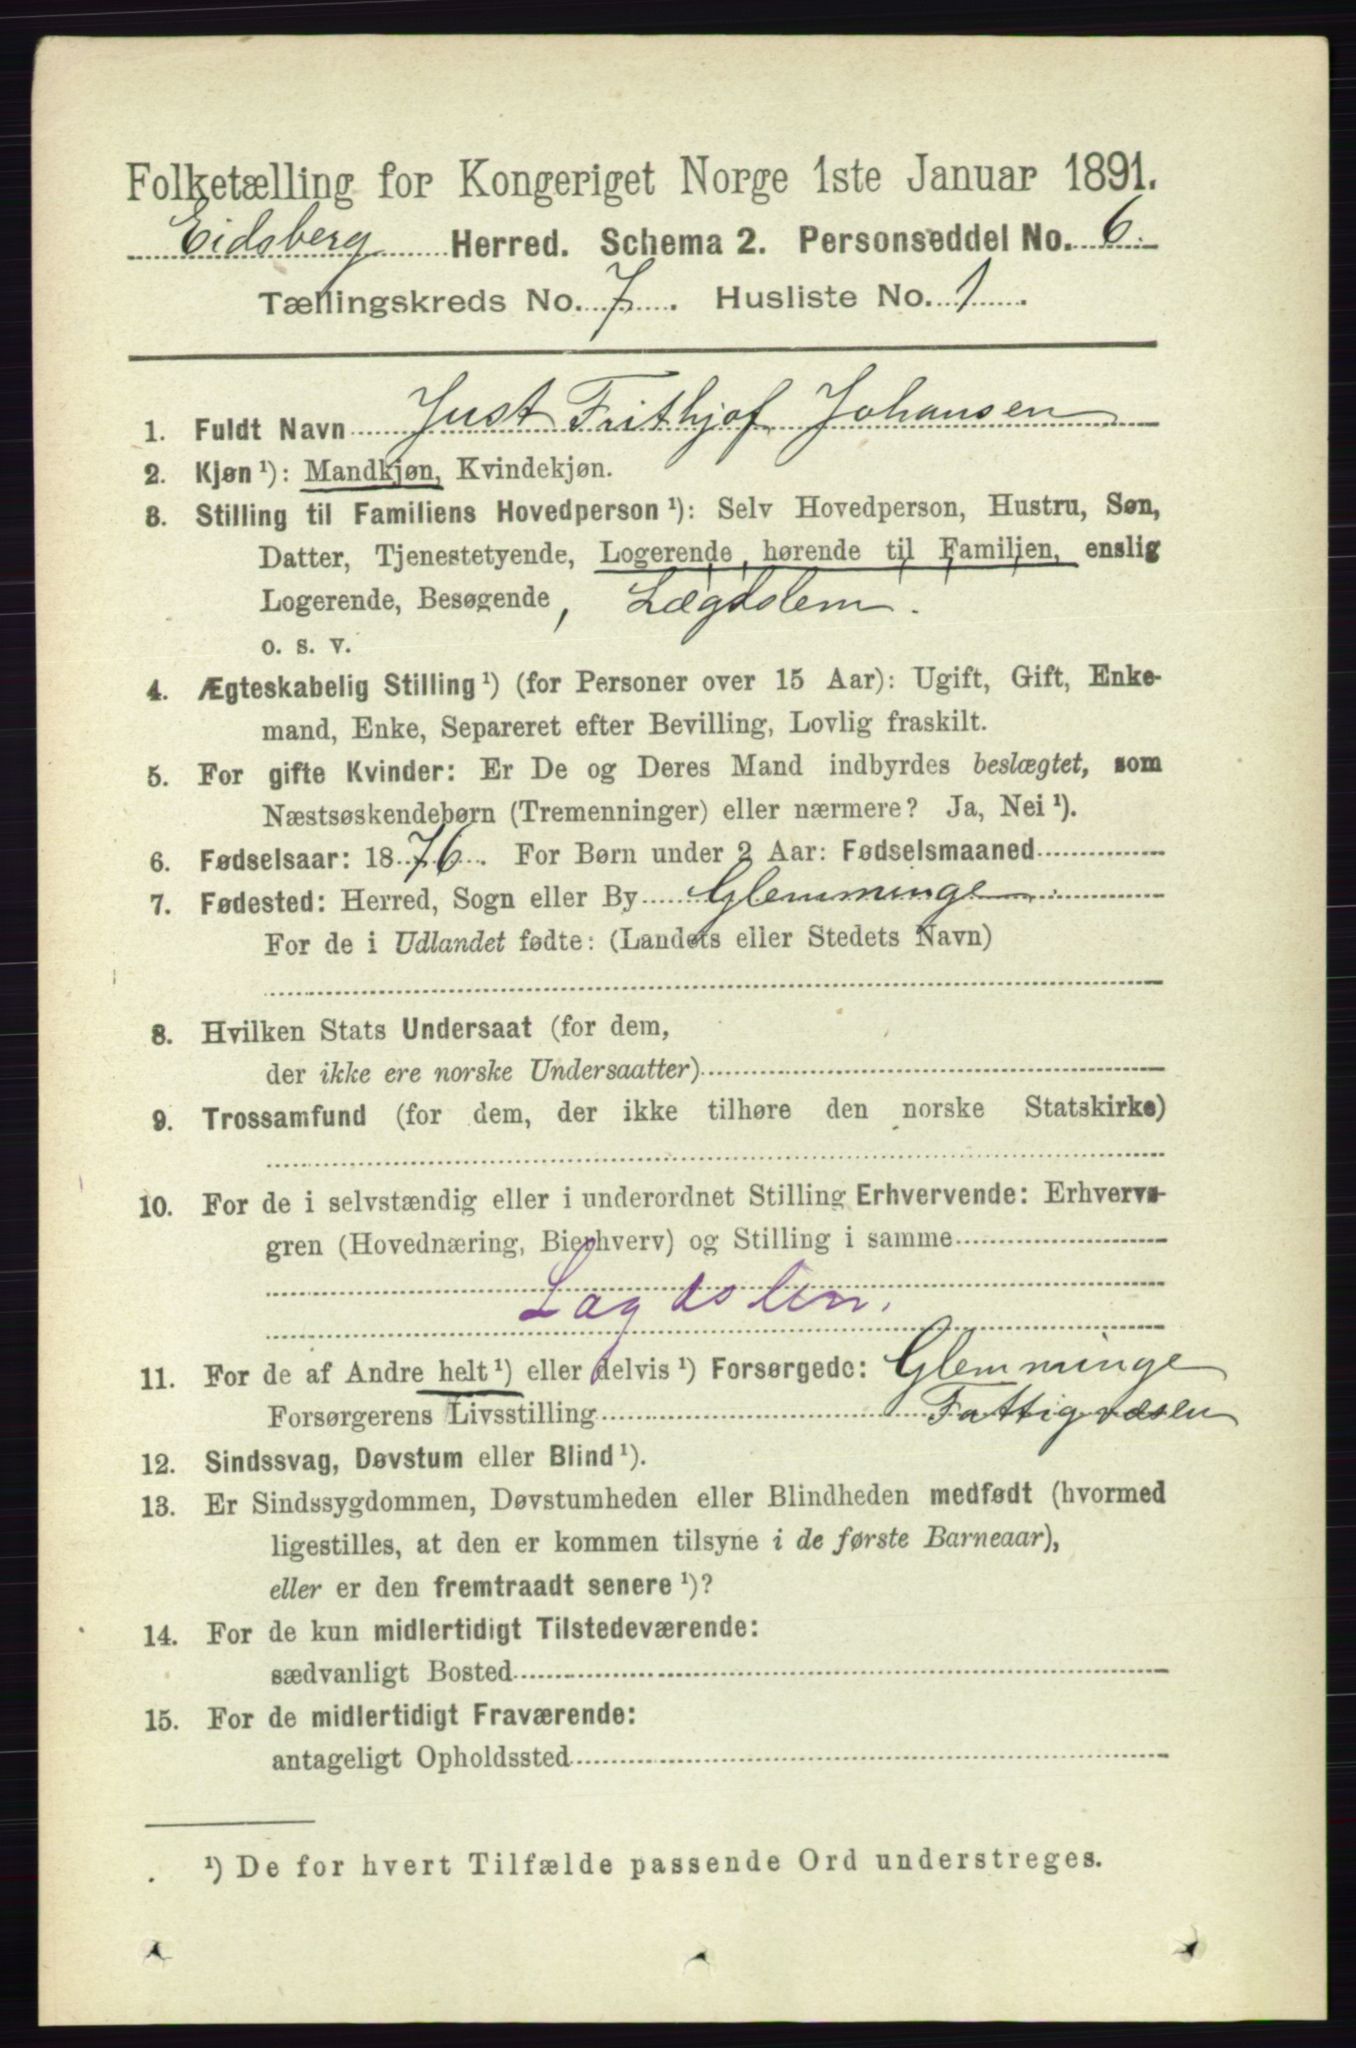 Folketælling for Kongeriget Norge 1ste Januar 1891.
Eidsberg Herred. Schema 2. Personseddel No. 6.
Tællingskreds No. 7. Husliste No. 1.
1. Fuldt Navn Just Frithjof Johansen
2. Kjøn ¹): Mandkjøn, Kvindekjøn.
3. Stilling til Familiens Hovedperson ¹): Selv Hovedperson, Hustru, Søn,
Datter, Tjenestetyende, Logerende, hørende til Familien, enslig
Logerende, Besøgende, Lægdslem.
o. s. v.
4. Ægteskabelig Stilling ¹) (for Personer over 15 Aar): Ugift, Gift, Enke-
mand, Enke, Separeret efter Bevilling, Lovlig fraskilt.
5. For gifte Kvinder: Er De og Deres Mand indbyrdes beslægtet, som
Næstsøskendebørn (Tremenninger) eller nærmere? Ja, Nei ¹).
6. Fødselsaar: 1876. For Børn under 2 Aar: Fødselsmaaned
7. Fødested: Herred, Sogn eller By Glemminge
For de i Udlandet fødte: (Landets eller Stedets Navn)
8. Hvilken Stats Undersaat (for dem,
der ikke ere norske Undersaatter)
9. Trossamfund (for dem, der ikke tilhøre den norske Statskirke)
10. For de i selvstændig eller i underordnet Stilling Erhvervende: Erhvervs-
gren (Hovednæring, Bierhverv) og Stilling i samme
Lægdslem.
11. For de af Andre helt ¹) eller delvis ¹) Forsørgede: Glemminge
Forsørgerens Livsstilling Fattigvæsen
12. Sindssvag, Døvstum eller Blind ¹).
13. Er Sindssygdommen, Døvstumheden eller Blindheden medfødt (hvormed
ligestilles, at den er kommen tilsyne i de første Barneaar),
eller er den fremtraadt senere ¹)?
14. For de kun midlertidigt Tilstedeværende:
sædvanligt Bosted
15. For de midlertidigt Fraværende:
antageligt Opholdssted
¹) De for hvert Tilfælde passende Ord understreges.